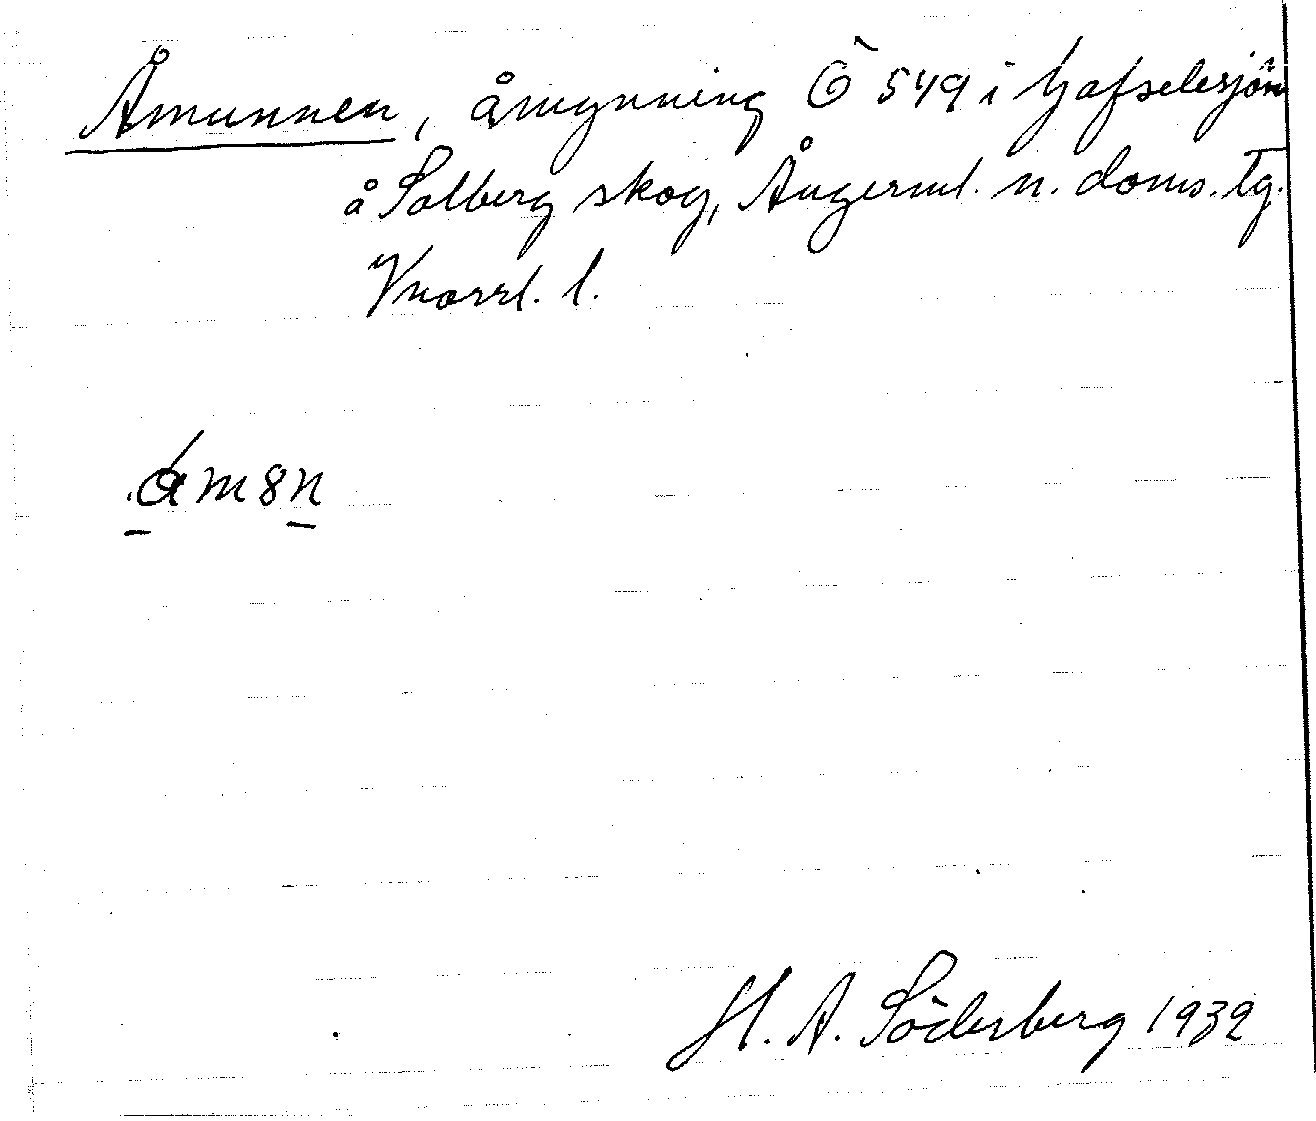 Åmunnen, åmynning Ö 549 i Gafselesjön
å Solberg skog, Ångerml. n. doms. tg.
Vnorrl. l.
åm8n
H. A. Söderberg 1939